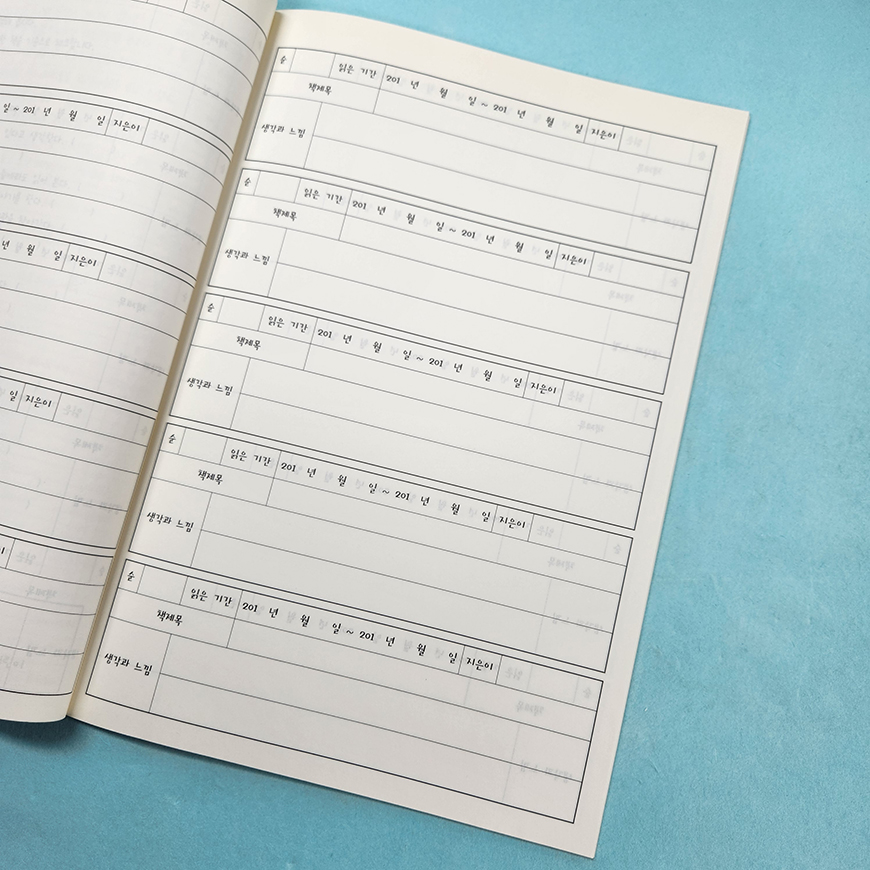 일 ~ 201 년 월 일 지은이
년 월 일 지은이
일 지은이
순 읽은 기간 201 년 월 일 ~ 201 년 월 일 지은이
책제목
생각과 느낌
순 읽은 기간 201 년 월 일 ~ 201 년 월 일 지은이
책제목
생각과 느낌
순 읽은 기간 201 년 월 일 ~ 201 년 월 일 지은이
책제목
생각과 느낌
순 읽은 기간 201 년 월 일 ~ 201 년 월 일 지은이
책제목
생각과 느낌
순 읽은 기간 201 년 월 일 ~ 201 년 월 일 지은이
책제목
생각과 느낌